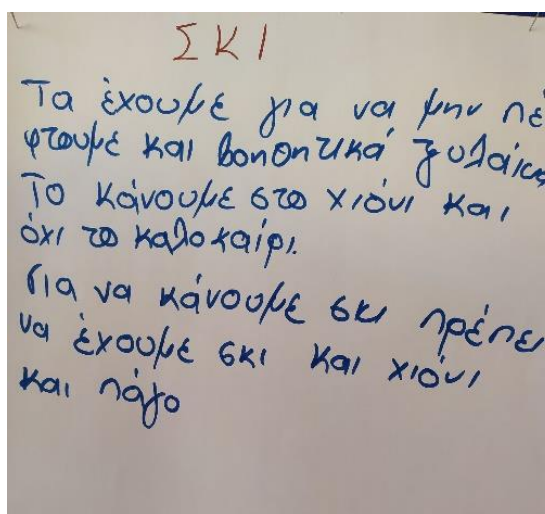 ΣΚΙ
Τα έχουμε για να μην πέ
φτουμε και βοηθητικά ξυλάκια
Το κάνουμε στο χιόνι και
όχι το καλοκαίρι.
Για να κάνουμε σκι πρέπει
να έχουμε σκι και χιόνι
και πάγο